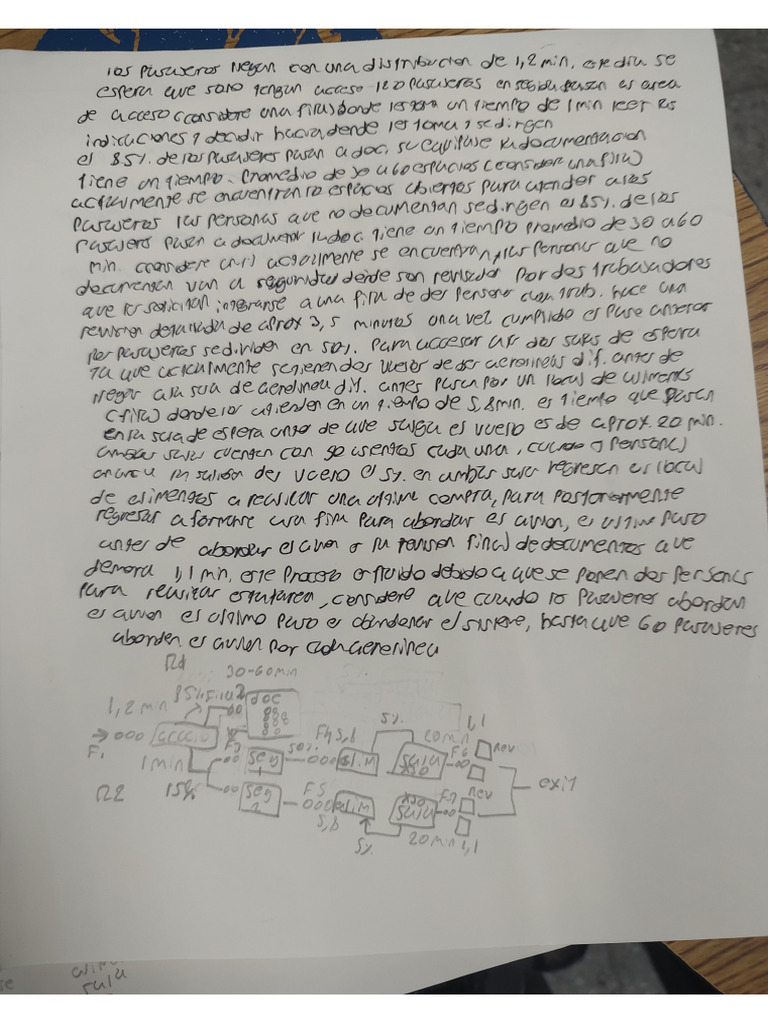 los pasajeros llegan con una distribucion de 1,2 min, este dia se
espera que solo tengan acceso 120 pasajeros en seguida pasan al area
de acceso (considere una fila) donde les toma un tiempo de 1 min leer las
indicaciones y decidir hacia donde les toma y se dirigen
el 85% de los pasajeros pasan a doc. su equipaje la documentacion
tiene un tiempo promedio de 30 a 60 espacios (considerar una fila)
actualmente se encuentran 10 espacios abiertos para atender a los
pasajeros las personas que no documentan se dirigen el 85% de los
pasajeros pasan a documentar la doc. tiene un tiempo promedio de 30 a 60
min. considere actualmente se encuentran y las personas que no
documentan van a seguridad donde son revisados por dos trabajadores
que los solicitan integrarse a una fila de der persona cada trab. hace una
revision detallada de aprox 3,5 minutos una vez cumplido el paso anterior
los pasajeros se dividen en 50% para accesar a las dos salas de espera
ya que actualmente se tienen dos vuelos de aerolineas dif. antes de
llegar a la sala de aerolinea dif. antes pasan por un local de alimentos
(fila) donde los atienden en un tiempo de 5,8 min. el tiempo que pasan
en la sala de espera antes de que salga el vuelo es de aprox. 20 min.
ambas salas cuentan con 90 asientos cada una, cuando personas
la salida del vuelo el 5% en ambas salas regresan al local
de alimentos a realizar una ultima compra, para posteriormente
regresar a formarse a la fila para abordar el avion, el ultimo paso
antes de abordar el avion es la revision final de documentos a que
demora 1,1 min, este proceso es fluido debido a que se ponen dos personas
para realizar esta tarea, considere que cuando los pasajeros abordan
el avion el ultimo paso es abandonar el sistema, hasta que 60 pasajeros
aborden el avion por cada aerolinea
R1
30-60min
85% Fila 2 doc
1,2 min
F1 000 acceso
1 min
F3 seg 1
50%
F4 5,8
000 alim
5%
20 min
sala x50
F6
1,1
rev
exit
R2
15%
seg 2
F5
000 alim
5,8
5%
x50 sala
20 min
F7
rev
1,1
alim
sala